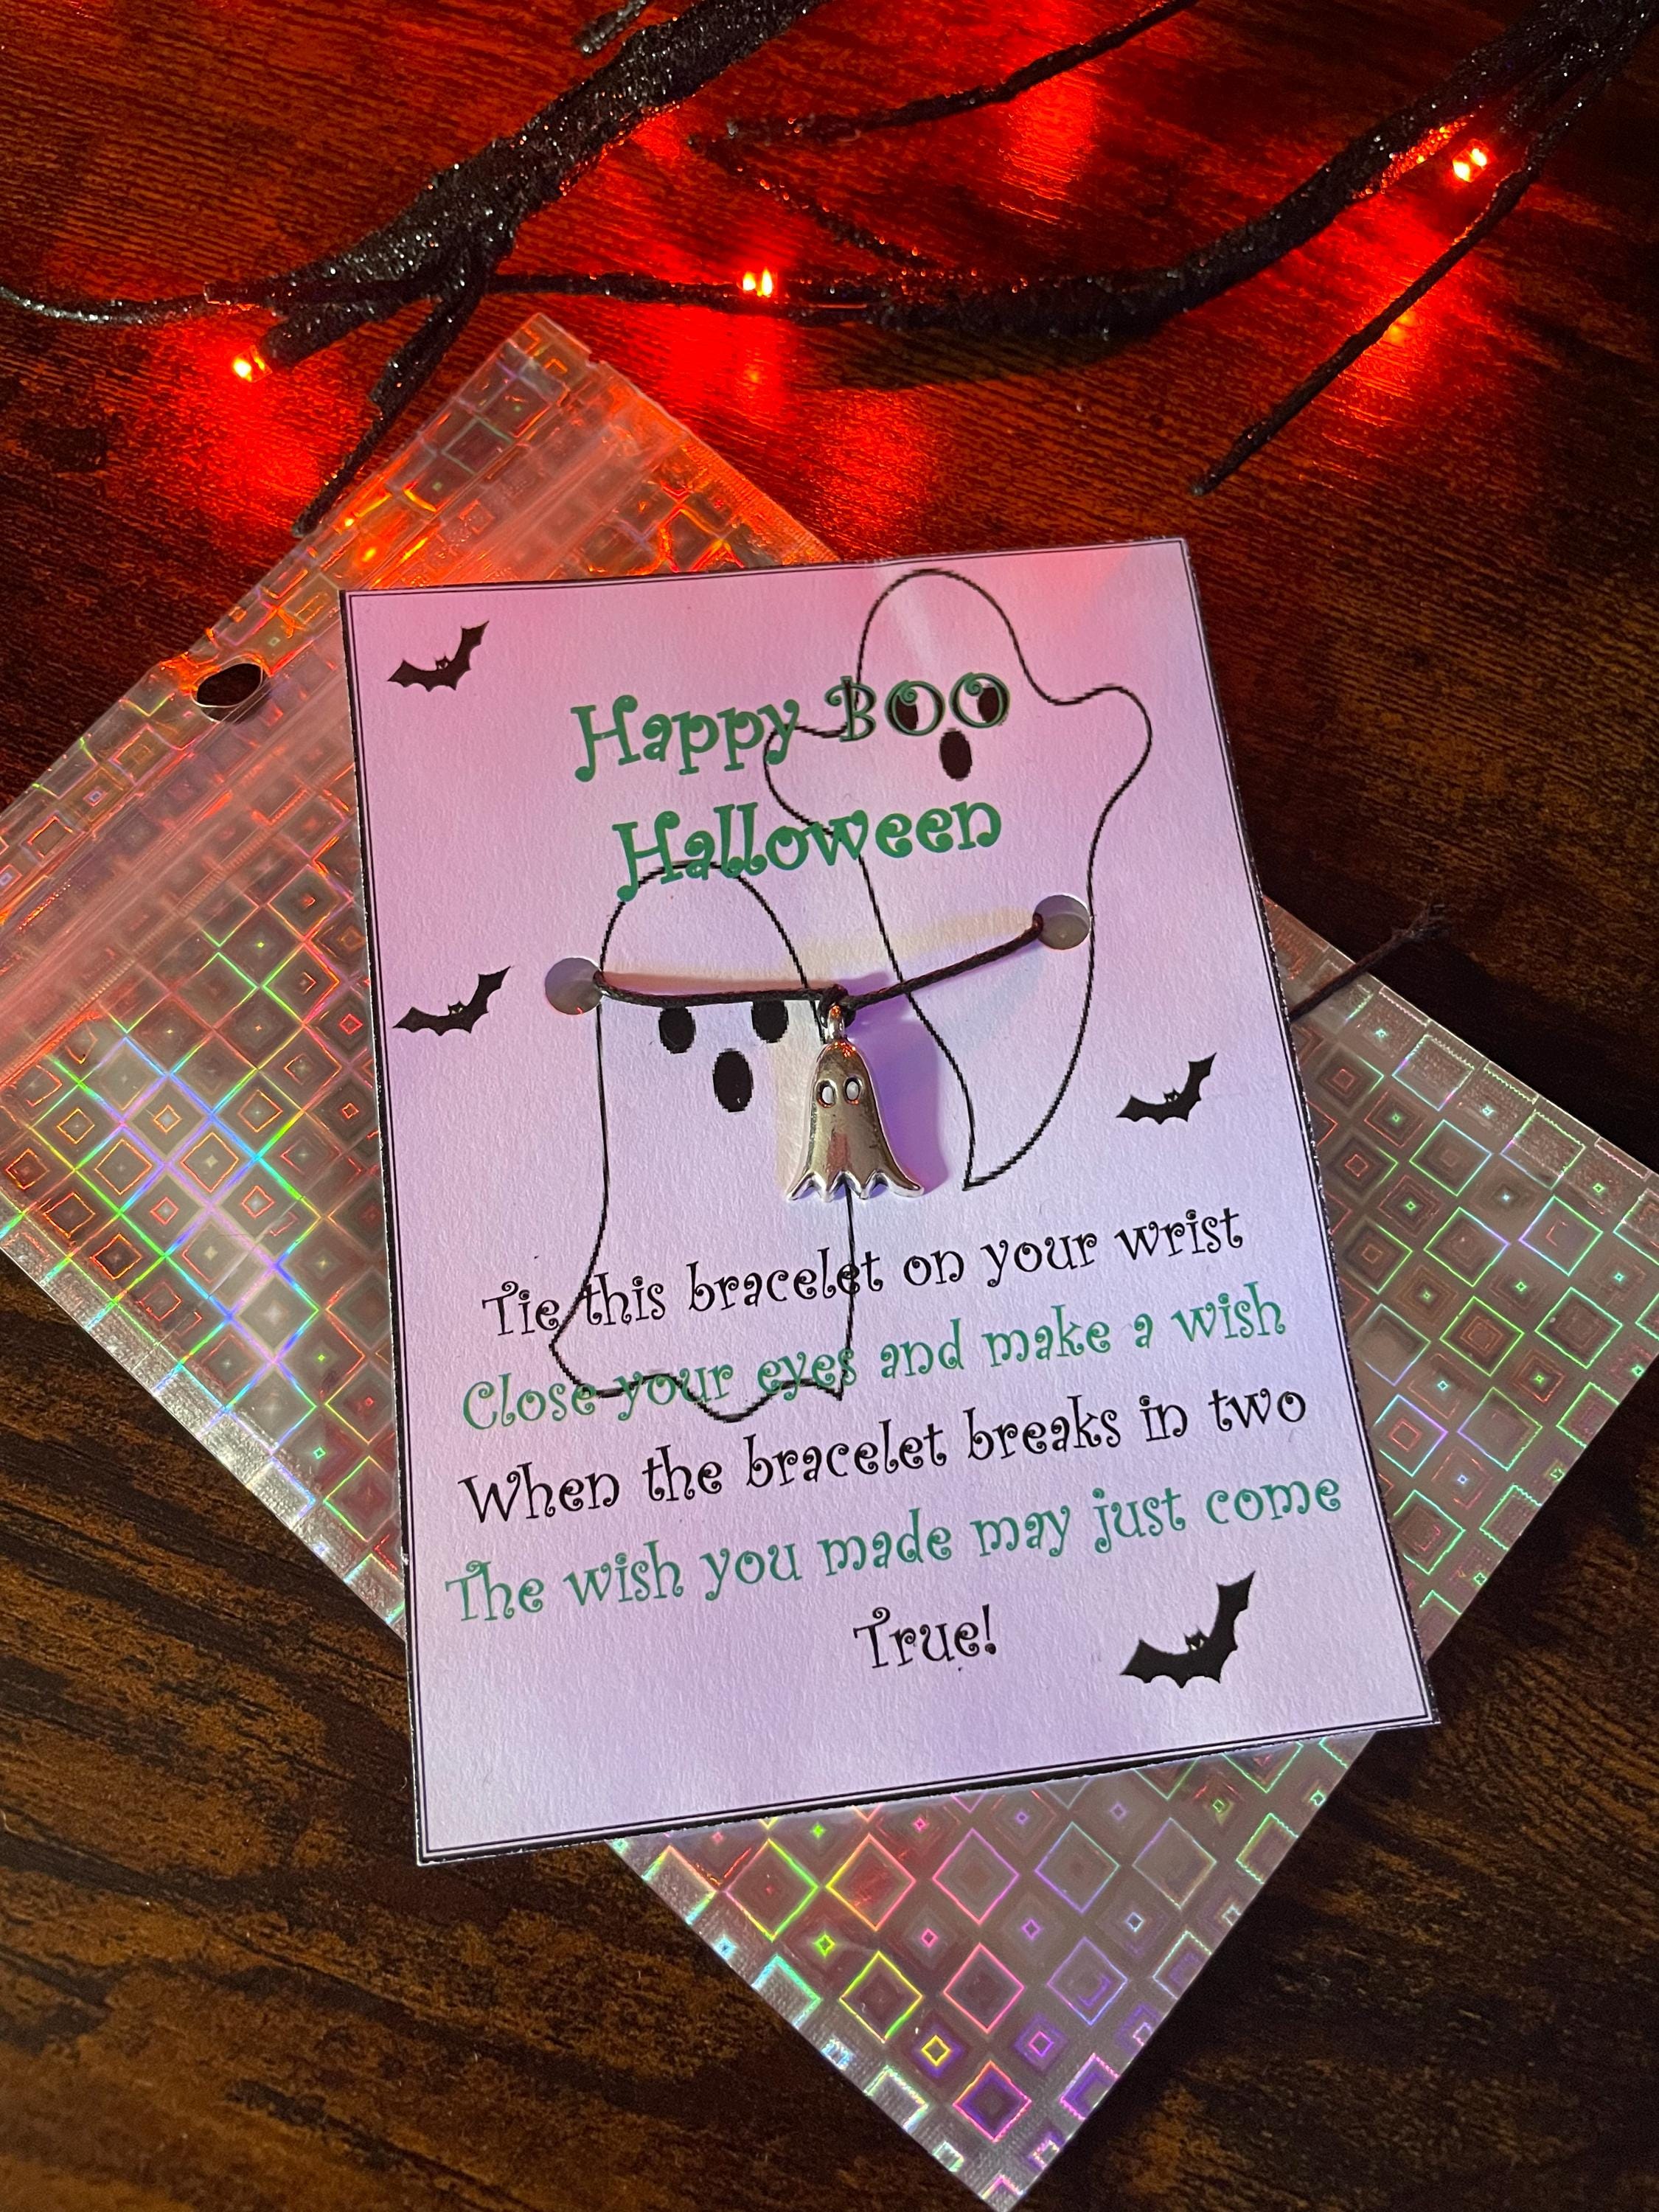 Happy BOO
Halloween
Tie this bracelet on your wrist
Close your eyes and make a wish
When the bracelet breaks in two
The wish you made may just come
True!